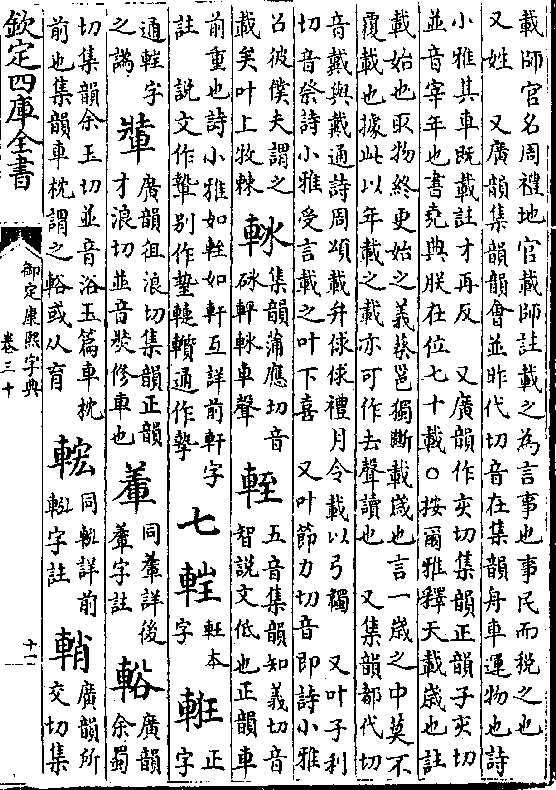 載師官名周禮地官載師註載之為言事也事民而稅之也
又姓　又廣韻集韻韻會並昨代切音在集韻舟車運物也詩
小雅其車既載註才再反　又廣韻作亥切集韻正韻子亥切
並音宰年也書堯典朕在位七十載○按爾雅釋天載歲也註
載始也取物終更始之義蔡邕獨斷載歲也言一歲之中莫不
覆載也據此以年載之載亦可作去聲讀也　又集韻都代切
音戴與戴通詩周頌載弁俅俅禮月令載以弓韣　又叶子利
切音祭詩小雅受言載之叶下喜　又叶節力切音即詩小雅
召彼僕夫謂之
載矣叶上牧棘
軙 集韻蒲應切音
砯軯軙車聲
輊 五音集韻知義切音
智說文低也正韻車
前重也詩小雅如輊如軒互詳前軒字
註　說文作䡹别作蟄䡻䡩通作摯
七
𨌅 軖本
字
軭 正
字
通軖字
之譌
𨌄 廣韻徂浪切集韻正韻
才浪切並音奘修車也
䡛 同輂詳後
輂字註
輍 廣韻
余蜀
切集韻余玉切並音浴玉篇車枕
前也集韻車枕謂之輍或从育
䡏 同䡌詳前
䡌字註
輎 廣韻所
交切集
欽定四庫全書
御定康熙字典
卷三十
十一